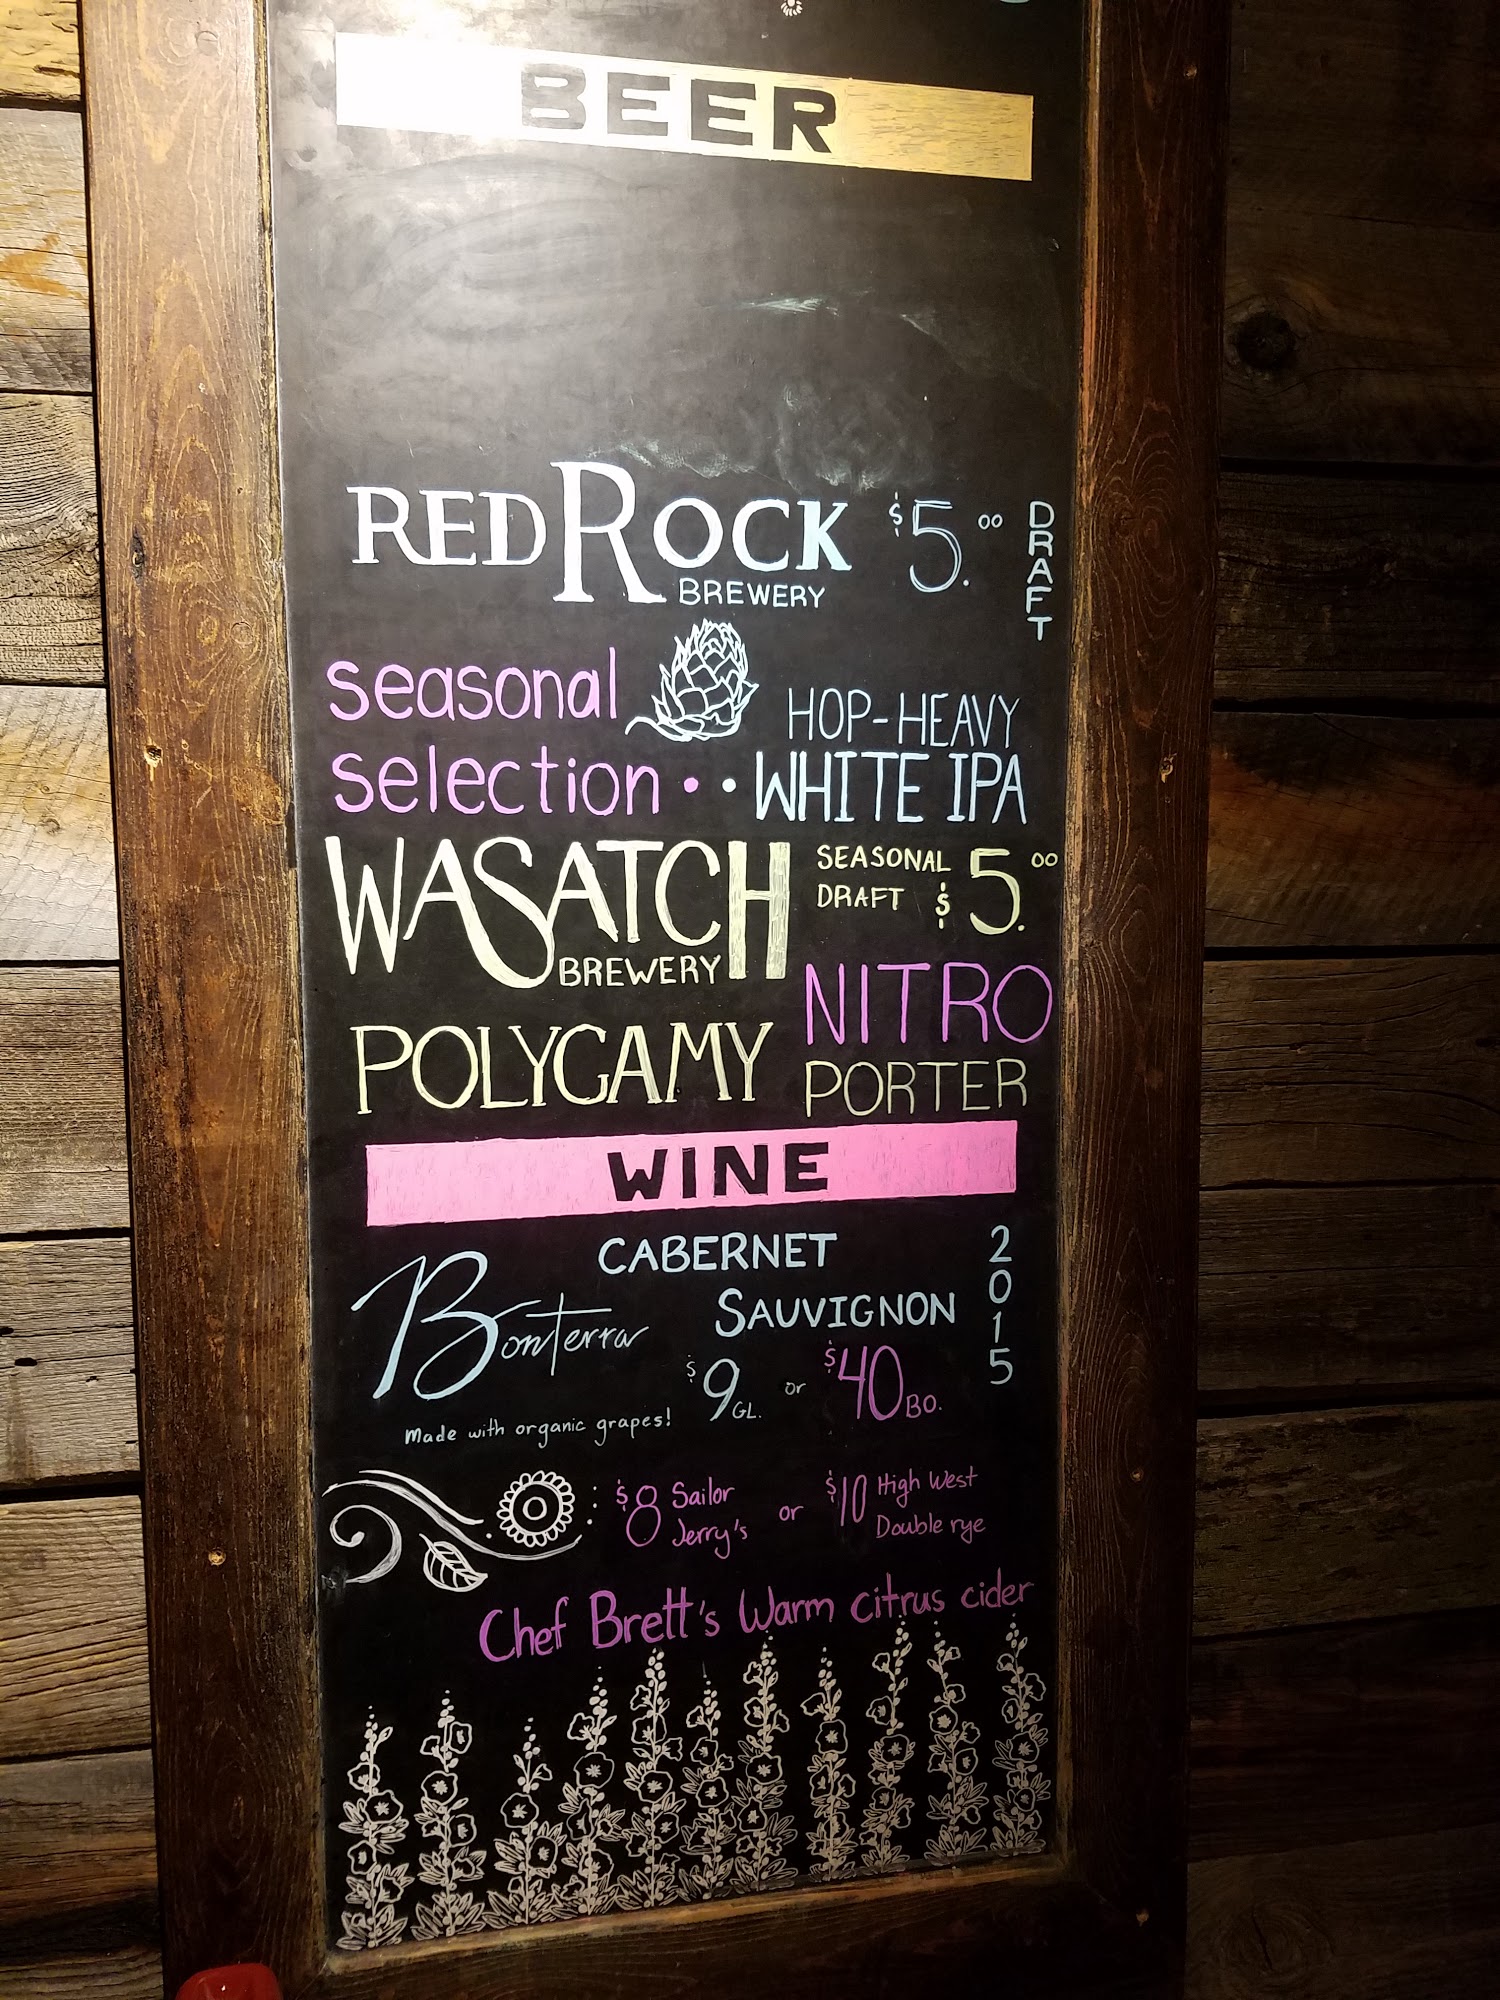 BEER
RED ROCK $5.00 DRAFT
BREWERY
seasonal HOP-HEAVY
selection • • WHITE IPA
WASATCH SEASONAL DRAFT $5.00
BREWERY
POLYGAMY NITRO PORTER
WINE
CABERNET
SAUVIGNON
2015
Bonterra
$9 GL. or $40 BO.
Made with organic grapes!
: $8 Sailor Jerry's or $10 High West Double rye
Chef Brett's Warm citrus cider